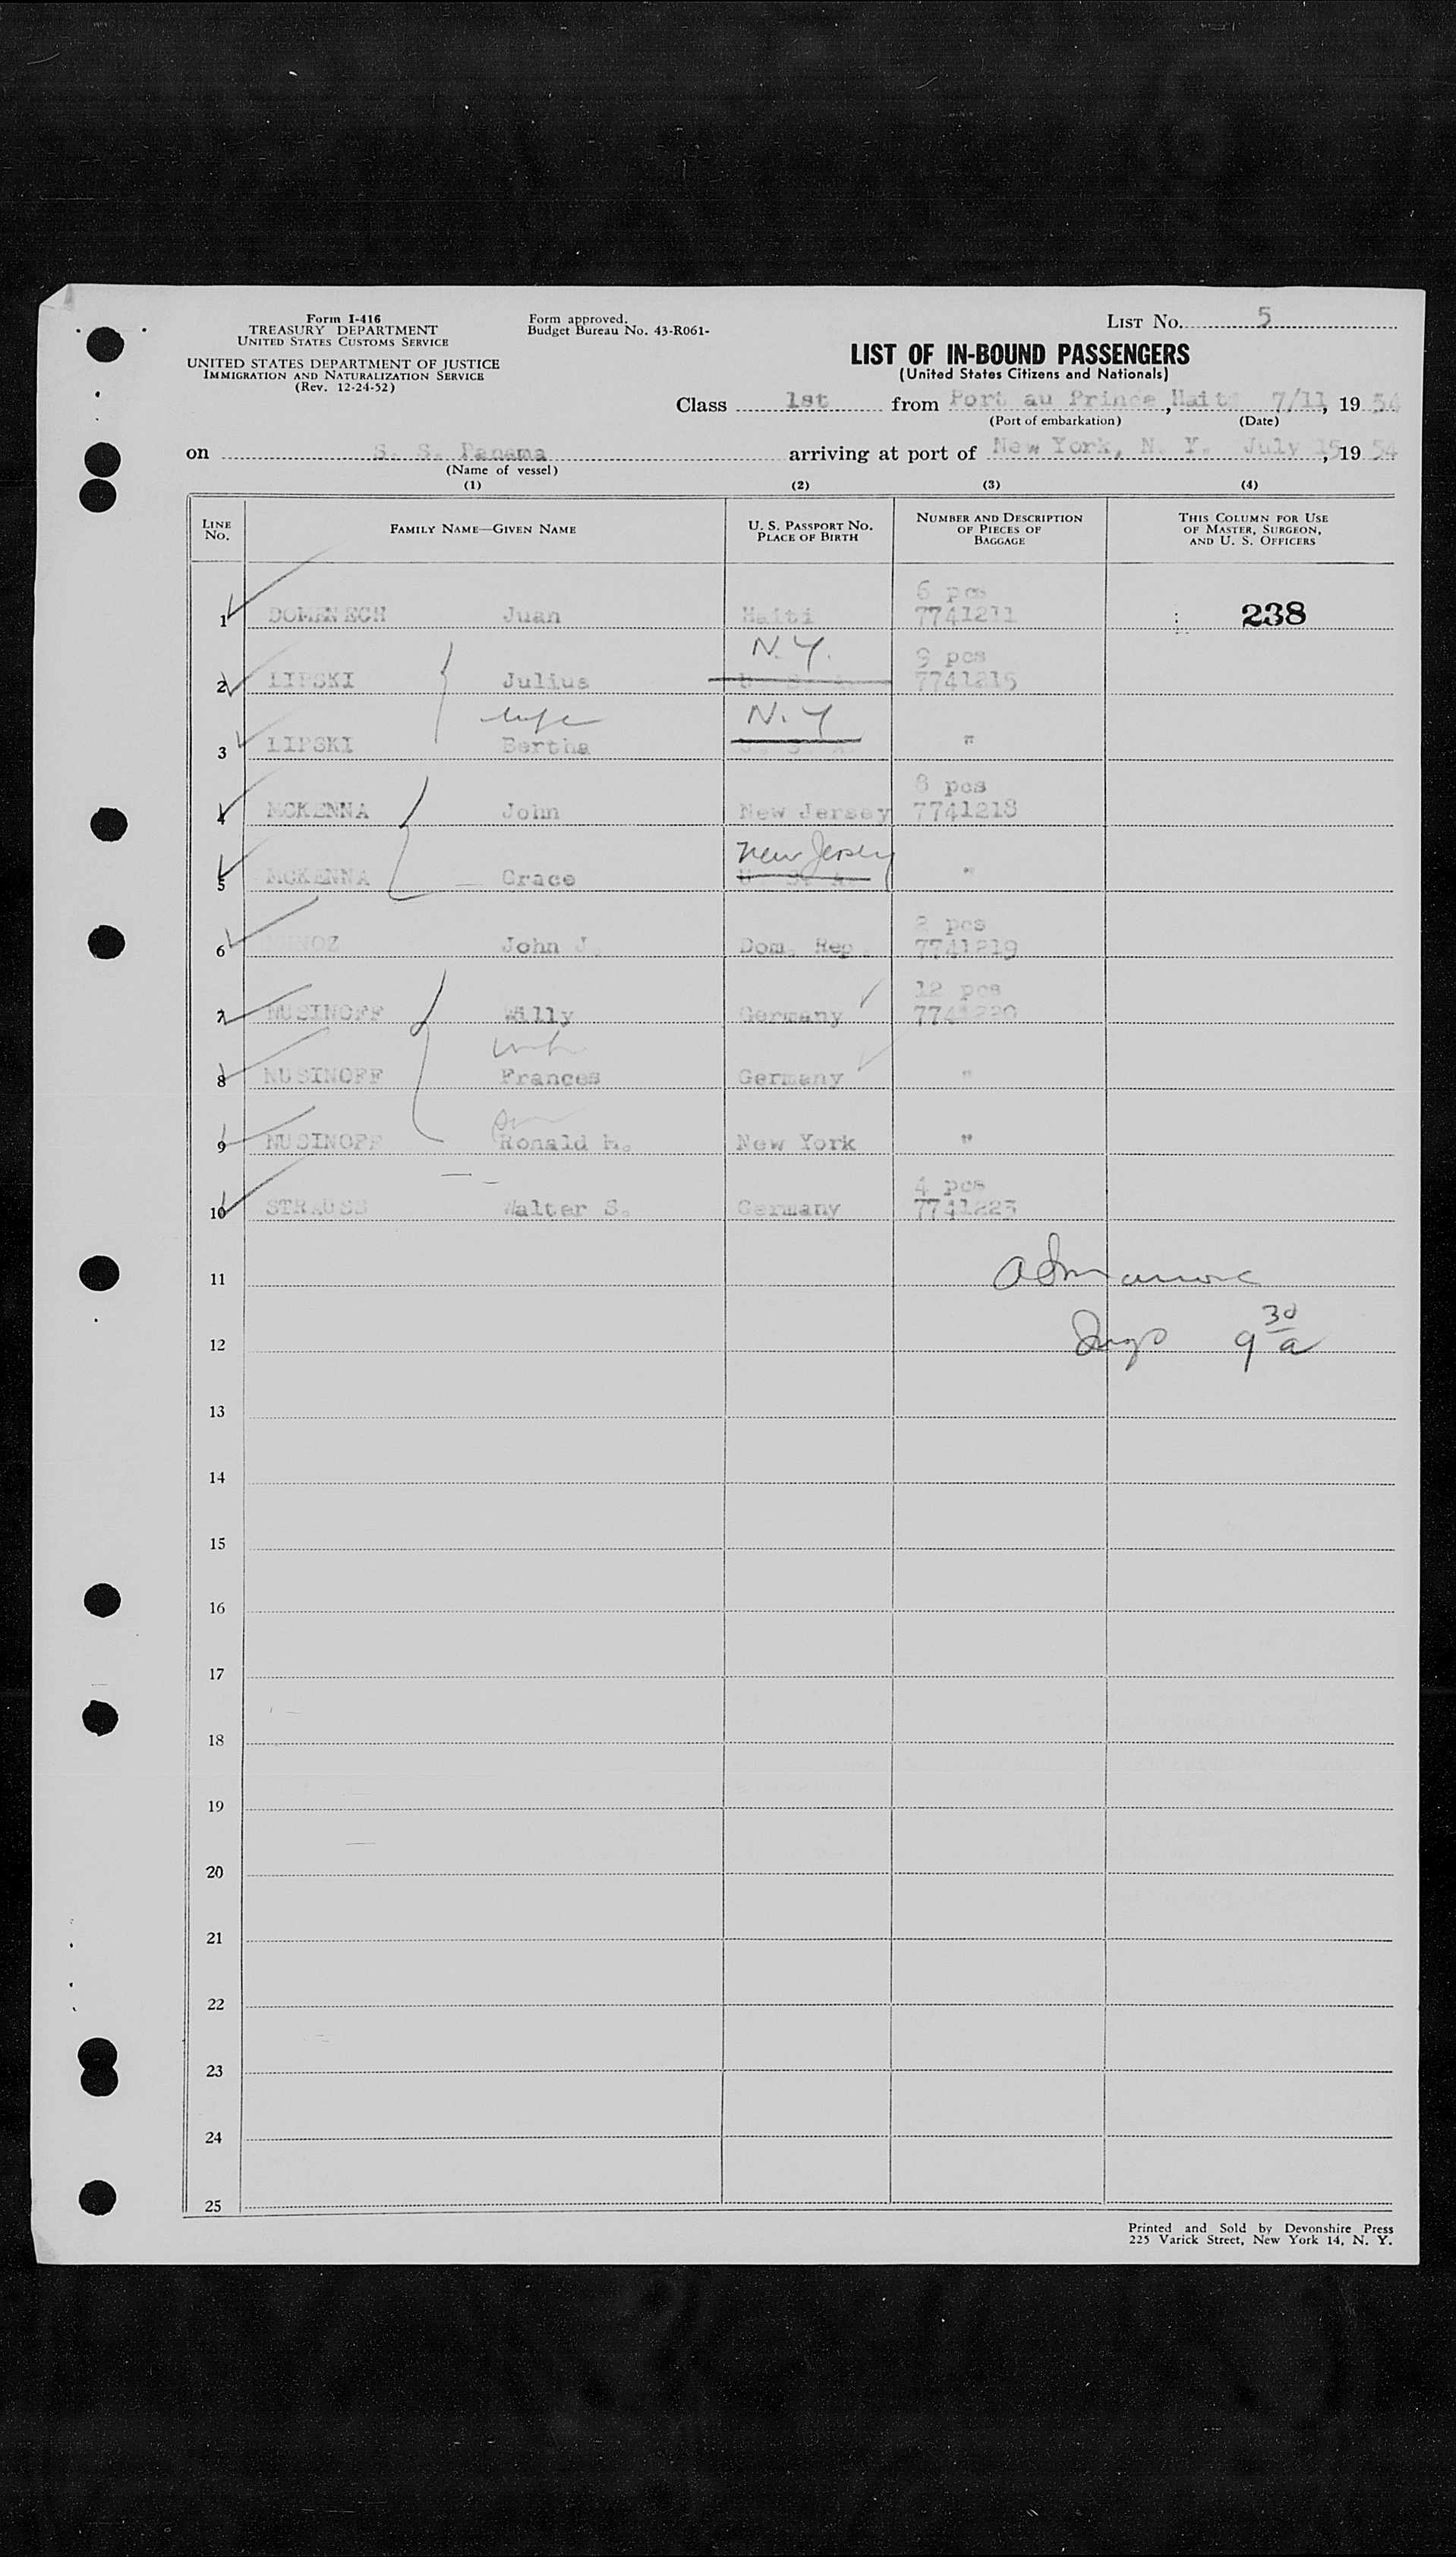 Form I-416
TREASURY DEPARTMENT
UNITED STATES CUSTOMS SERVICE
UNITED STATES DEPARTMENT OF JUSTICE
IMMIGRATION AND NATURALIZATION SERVICE
(Rev. 12-24-52)
Form approved.
Budget Bureau No. 43-R061-
LIST NO. 5
LIST OF IN-BOUND PASSENGERS
(United States Citizens and Nationals)
Class 1st from Port au Prince, Haiti 7/11, 19 54
(Port of embarkation) (Date)
on S. S. Panama arriving at port of New York, N. Y. July 15, 19 54
(Name of vessel)
(1) (2) (3) (4)
LINE NO. FAMILY NAME—GIVEN NAME U. S. PASSPORT NO. PLACE OF BIRTH NUMBER AND DESCRIPTION OF PIECES OF BAGGAGE THIS COLUMN FOR USE OF MASTER, SURGEON, AND U. S. OFFICERS
6 pcs
1 DOMENECH Juan Haiti 7741211 238
N.Y. 9 pcs
2 LIPSKI Julius U. S. A. 7741215
wife N.Y
3 LIPSKI Bertha U. S. A. "
8 pcs
4 MCKENNA John New Jersey 7741218
New Jersey
5 MCKENNA Grace U. S. A. "
2 pcs
6 John J. Dom. Rep. 7741219
12 pcs
7 NUSINOFF Willy Germany 7741220
wife
8 NUSINOFF Frances Germany "
son
9 NUSINOFF Ronald New York "
4 pcs
10 STRAUSS Walter S. Germany 7741223
11
12 9 30 a
13
14
15
16
17
18
19
20
21
22
23
24
25
Printed and Sold by Devonshire Press
225 Varick Street, New York 14, N. Y.